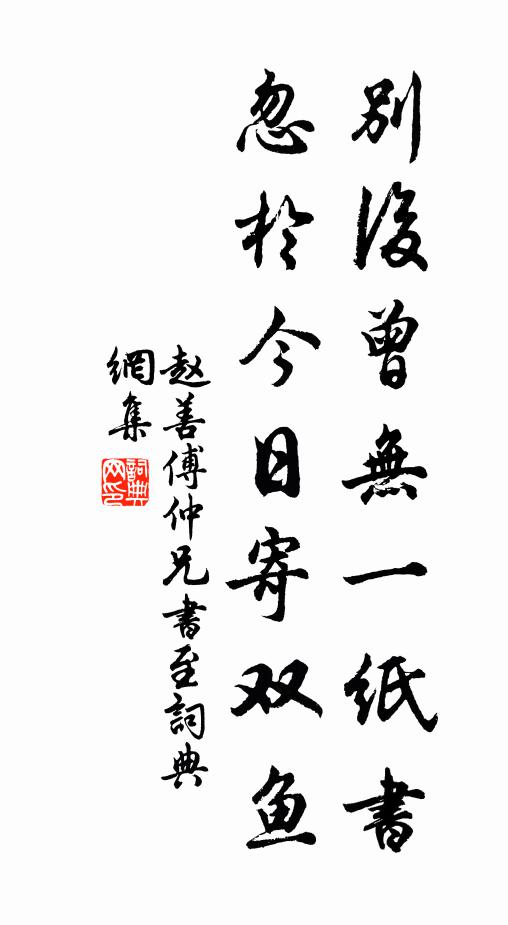 別後曾無一紙書
忽於今日寄双鱼
赵善傅仲兄書至詞典
網集
詞典
网印